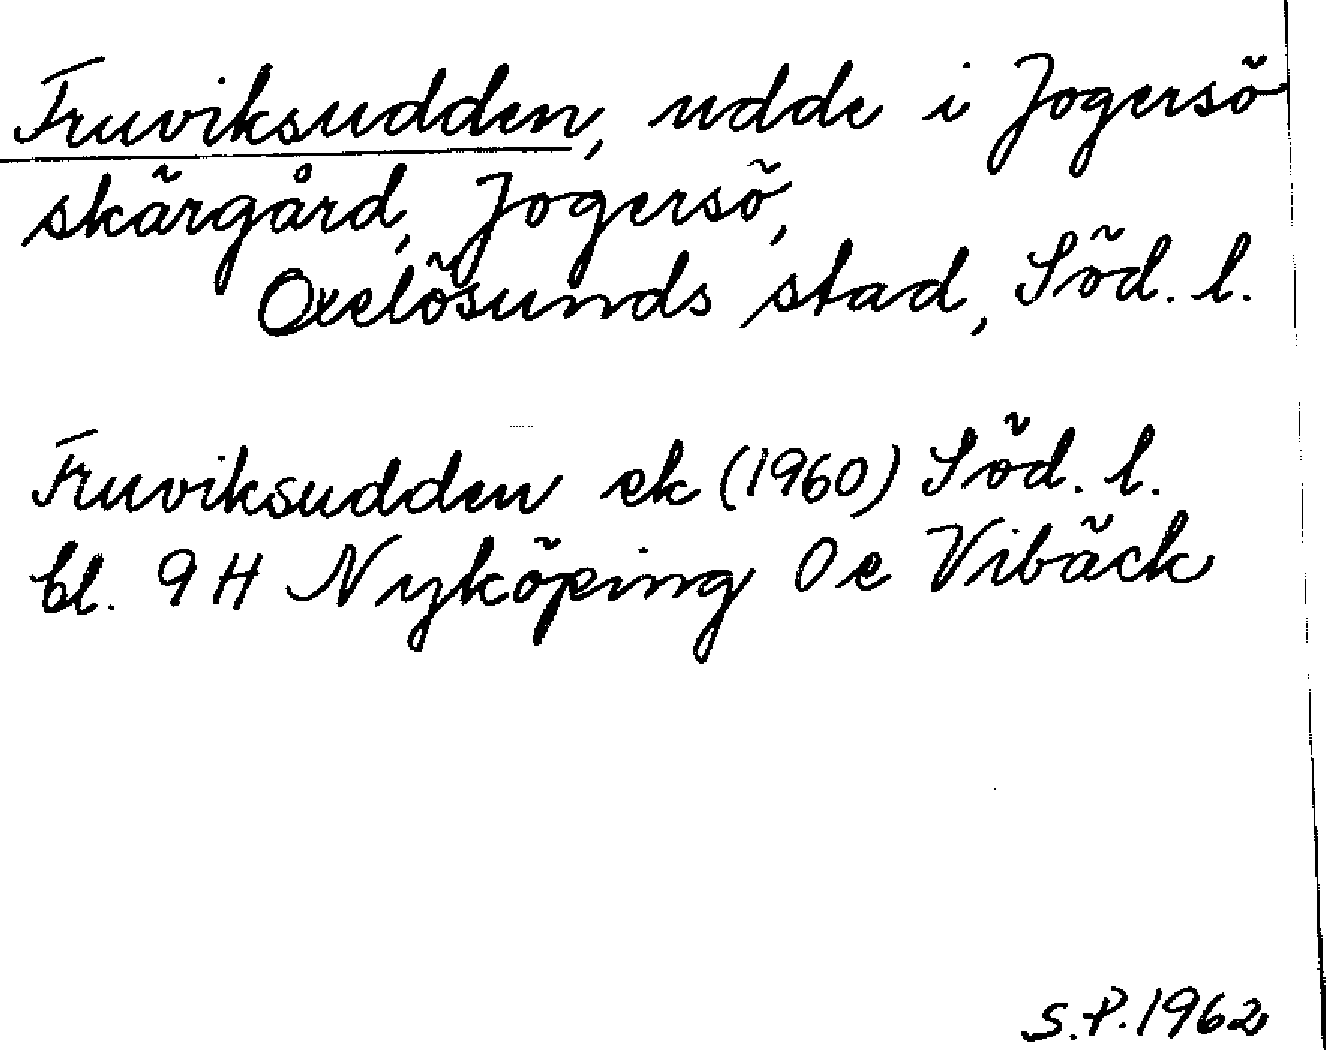 Fruviksudden, udde i Jogersö
skärgård, Jogersö,
Oxelösunds stad, Söd. l.
Fruviksudden ek (1960) Söd. l.
bl. 9 H Nyköping O e Vibäck
S.P. 1962